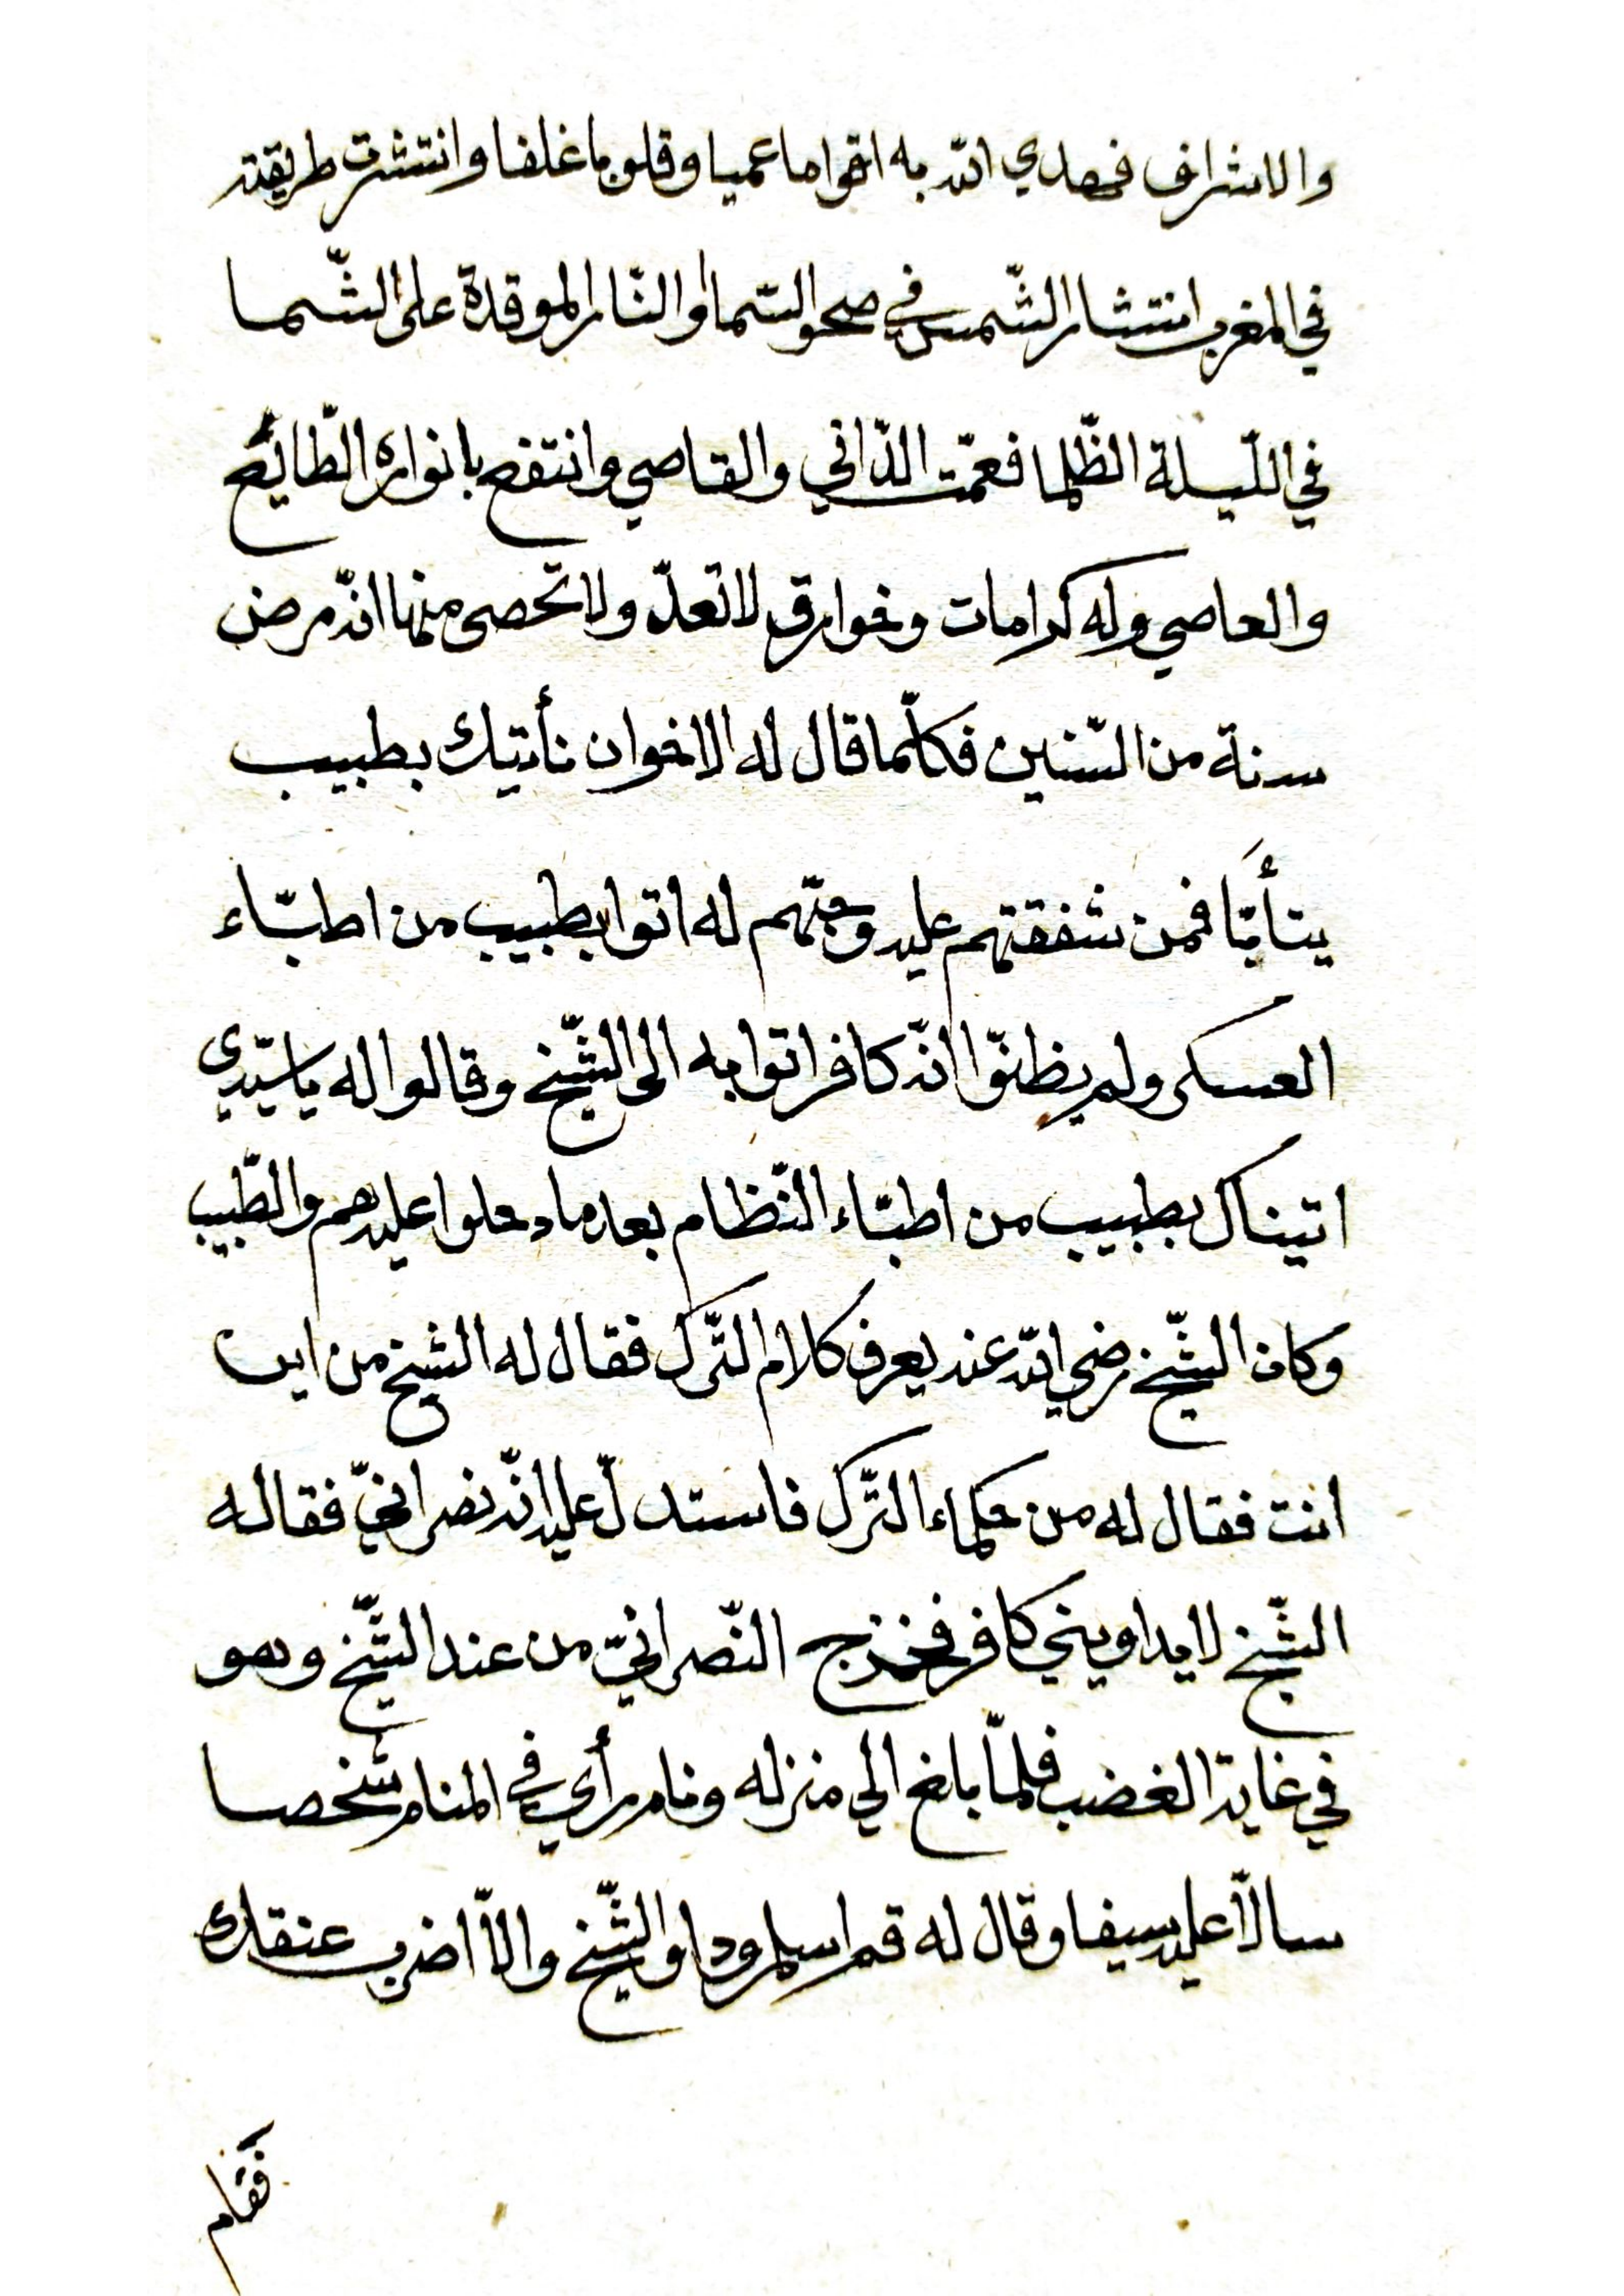 والاشراف فهدي الله به اقواما عميا وقلوبا غلفا وانتشرت طريقته
في المغرب انتشار الشّمس في صحو السّما والنّار الموقدة على الشّما
في اللّيلة الظّلما فعمّت الدّاني والقاصي وانتفع بانواره الطّايُع
والعاصي وله كرامات وخوارق لا تعدّ ولا تحصى منها انّه مرض
سنة من السّنين فكلّما قال له الاخوان نأتيك بطبيب
يتأبّا فمن شفقتهم عليه وحبّهم له اتوا بطبيب من اطبّاء
العسكر ولم يظنّوا انّه كافر اتوا به الى الشّيخ وقالوا له يا سيّدي
اتيناك بطبيب من اطبّاء النّظام بعد ما دخلوا عليه هم والطّبيب
وكان الشّيخ رضي الله عنه يعرف كلام التّرك فقال له الشيخ من اين
انت فقال له من حكماء التّرك فاستدلّ عليه انّه نصرانيّ فقال له
الشّيخ لا يداويني كافر فخرج النّصرانيّ من عند الشّيخ وهو
في غاية الغضب فلمّا بلغ الي منزله ونام رأي في المنام شخصا
سالّا عليه سيفا وقال له قم اسلم وداو الشّيخ والّا اضرب عنقك
فقام